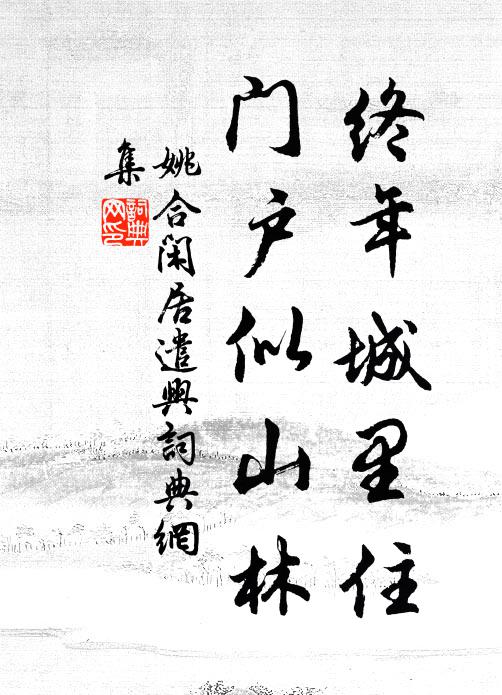 终年城里住
门户似山林
姚合闲居遣興詞典網
集
詞典
网印